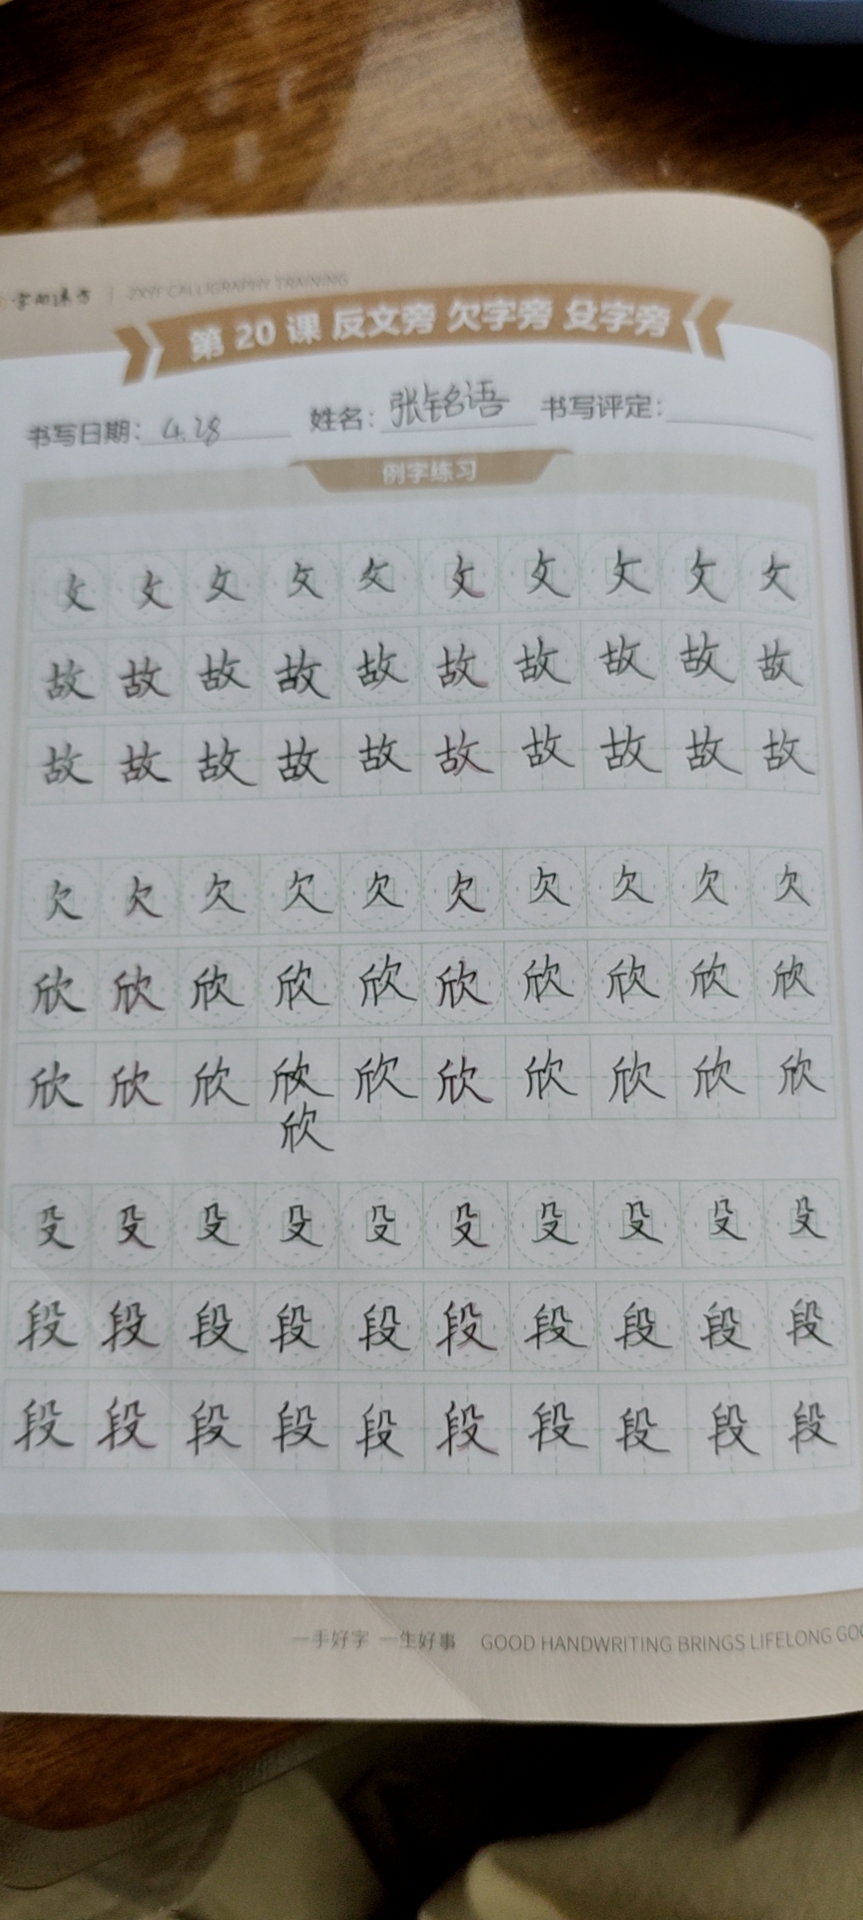 字的课方 | ZXYF CALLIGRAPHY TRAINING
第 20 课 反文旁 欠字旁 殳字旁
书写日期： 4.28 姓名： 张铭语 书写评定：
例字练习
攵 攵 攵 攵 攵 攵 攵 攵 攵 攵
故 故 故 故 故 故 故 故 故 故
故 故 故 故 故 故 故 故 故 故
欠 欠 欠 欠 欠 欠 欠 欠 欠 欠
欣 欣 欣 欣 欣 欣 欣 欣 欣 欣
欣 欣 欣 欣 欣 欣 欣 欣 欣 欣
欣
殳 殳 殳 殳 殳 殳 殳 殳 殳 殳
段 段 段 段 段 段 段 段 段 段
段 段 段 段 段 段 段 段 段 段
一手好字 一生好事 GOOD HANDWRITING BRINGS LIFELONG